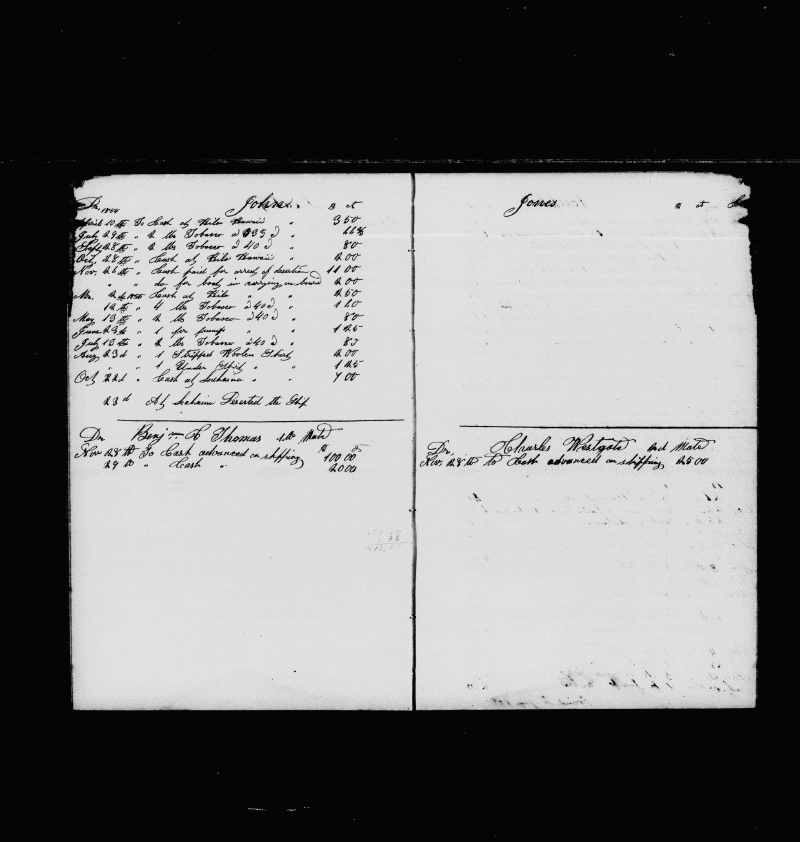 Dr. 1854 John $ ct
April 10th To Cash at Hilo Hawaii " 3 50
July 29th " 2 lbs Tobacco a 33 " 66
Sept 28th " 2 lbs Tobacco a 40 " 80
Oct, " Cash at Hilo Hawaii " 2 00
Nov. 26th " Cash paid for arrest of desertion 11 00
" " " do for boat in carrying on board 2 00
1855 " Cash at Hilo " " 2 50
12th " 4 lbs Tobacco a 40 " 1 60
May 13th " 2 lbs Tobacco a 40 " 80
June 23d " 1 pr pumps " " 1 25
July 13th " 2 lbs Tobacco a 40 " 80
Aug 23d " 1 Stripped Woolen Shirt 2 00
" " " 1 Under Shirt " " 1 25
Oct 22d " Cash at " 7 00
23d At Deserted the Ship
Dr Benjmn Thomas Mate
Nov 28th To Cash advanced on shipping $ 100 00
29th " Cash " 20 00
Jones $ ct
Dr. Charles Westgate 2nd Mate
Nov. 28th to Cash advanced on shipping 25 00